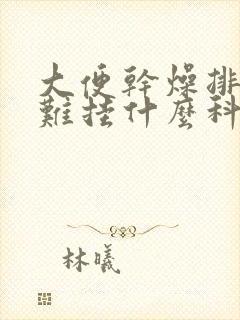 大便幹燥排
難挂什麼科
林曦